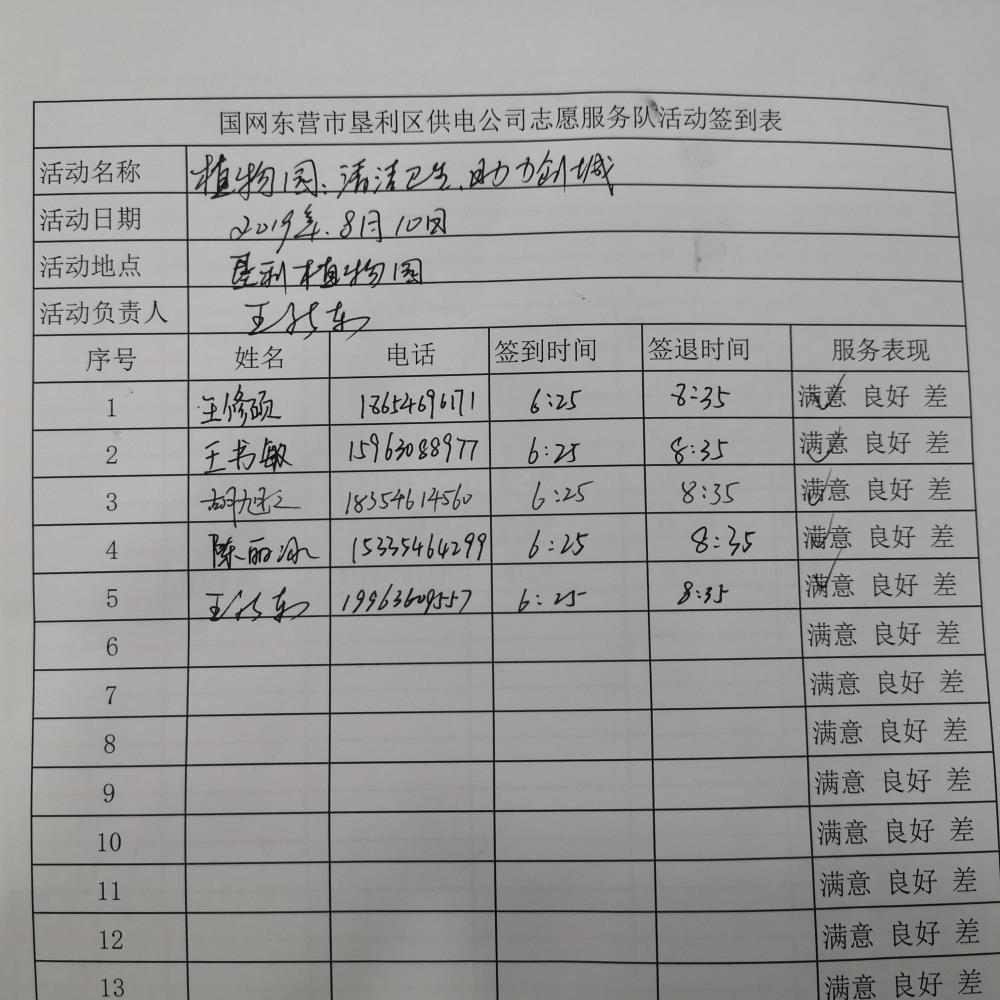 国网东营市垦利区供电公司志愿服务队活动签到表
活动名称 植物园:清洁卫生、助力创城
活动日期 2019年.8月10日
活动地点 垦利植物园
活动负责人 王
序号 姓名 电话 签到时间 签退时间 服务表现
1 王修硕 18654696171 6:25 8:35 满意 良好 差
2 王书敏 15963088977 6:25 8:35 满意 良好 差
3 胡旭 18354614560 6:25 8:35 满意 良好 差
4 陈丽冰 15335464299 6:25 8:35 满意 良好 差
5 王 19963609557 6:25 8:35 满意 良好 差
6 满意 良好 差
7 满意 良好 差
8 满意 良好 差
9 满意 良好 差
10 满意 良好 差
11 满意 良好 差
12 满意 良好 差
13 满意 良好 差